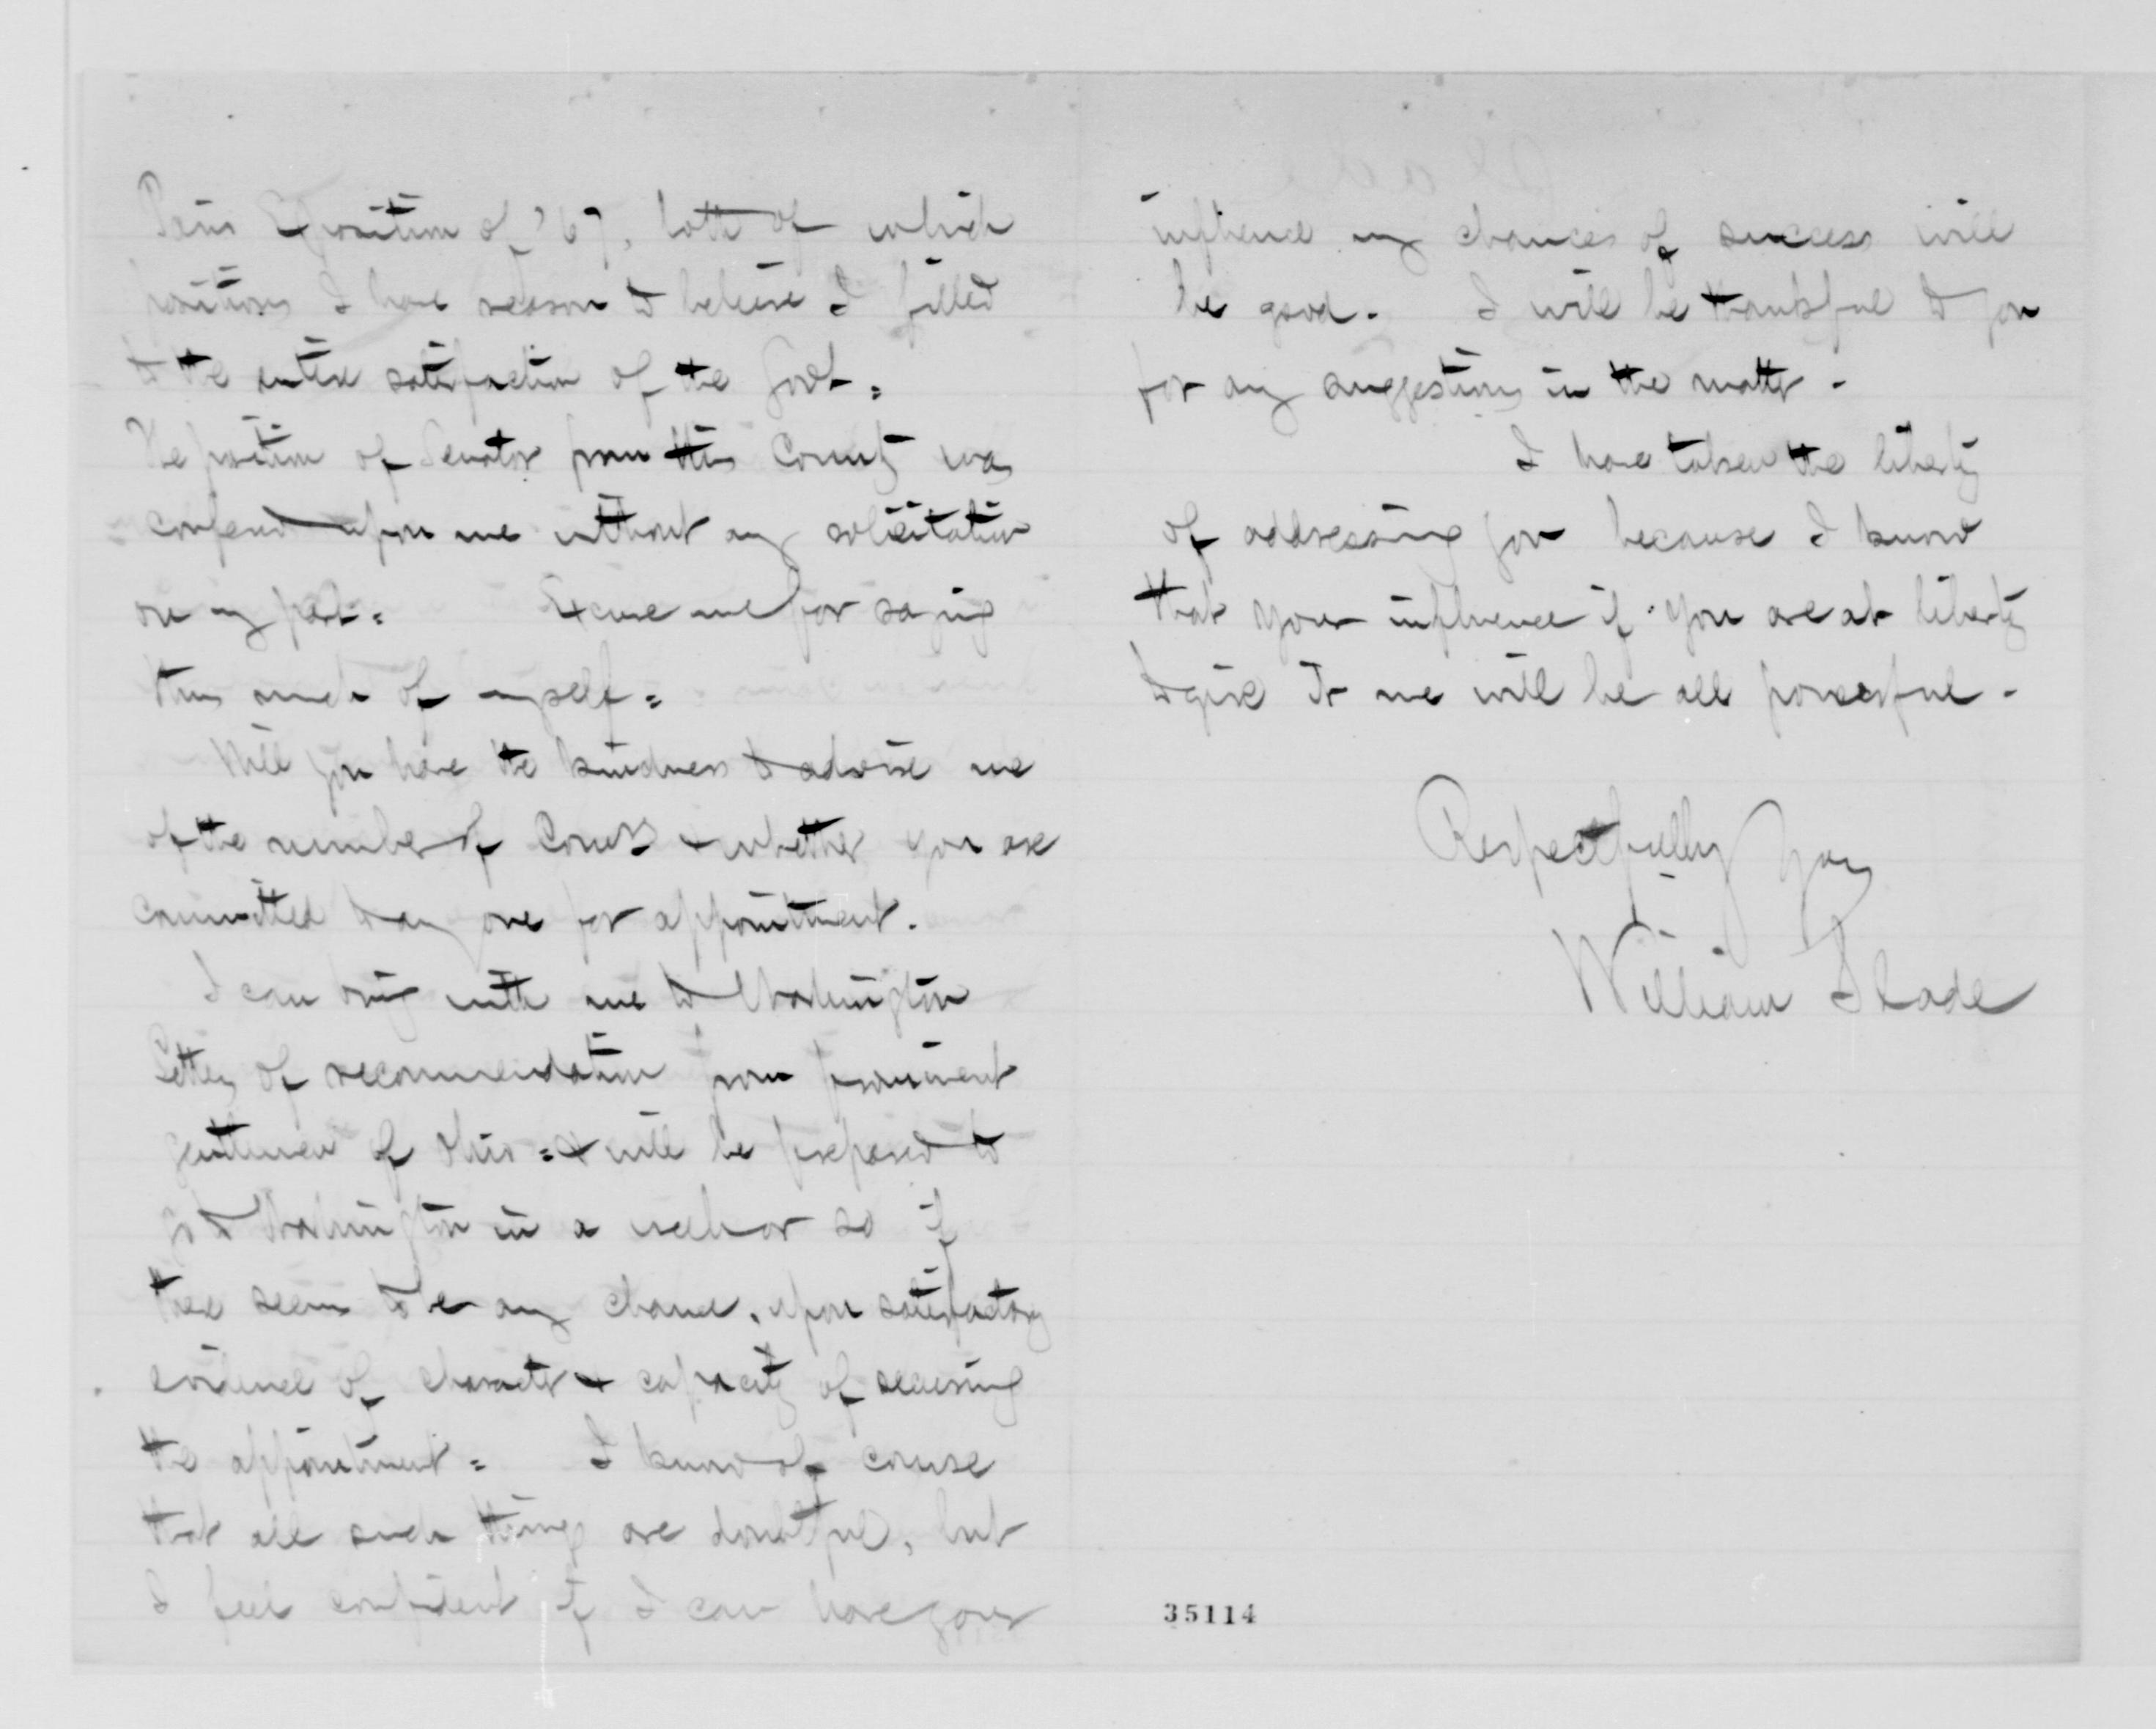 Paris Exposition of '67, both of which
positions I have reason to believe I filled
to the entire satisfaction of the Govt =
The position of Senator from this County was
conferred upon me without any solicitation
on my part = Excuse me for saying
thus much of myself =
Will you have the kindness to advise me
of the number of Comrs & whether you are
committed to any one for appointment.
I can bring with me to Washington
Letters of recommendation from prominent
gentlemen of Ohio = & will be prepared to
go to Washington in a week or so if
there seems to be any chance, upon satisfactory
evidence of character & capacity of receiving
the appointment = I know of course
that all such things are doubtful, but
I feel confident if I can have your
influence my chances of success will
be good - I will be thankful to you
for any suggestions in the matter -
I have taken the liberty
of addressing you because I know
that your influence if you are at liberty
to give it me will be all powerful -
Respectfully Yours
William Slade
35114